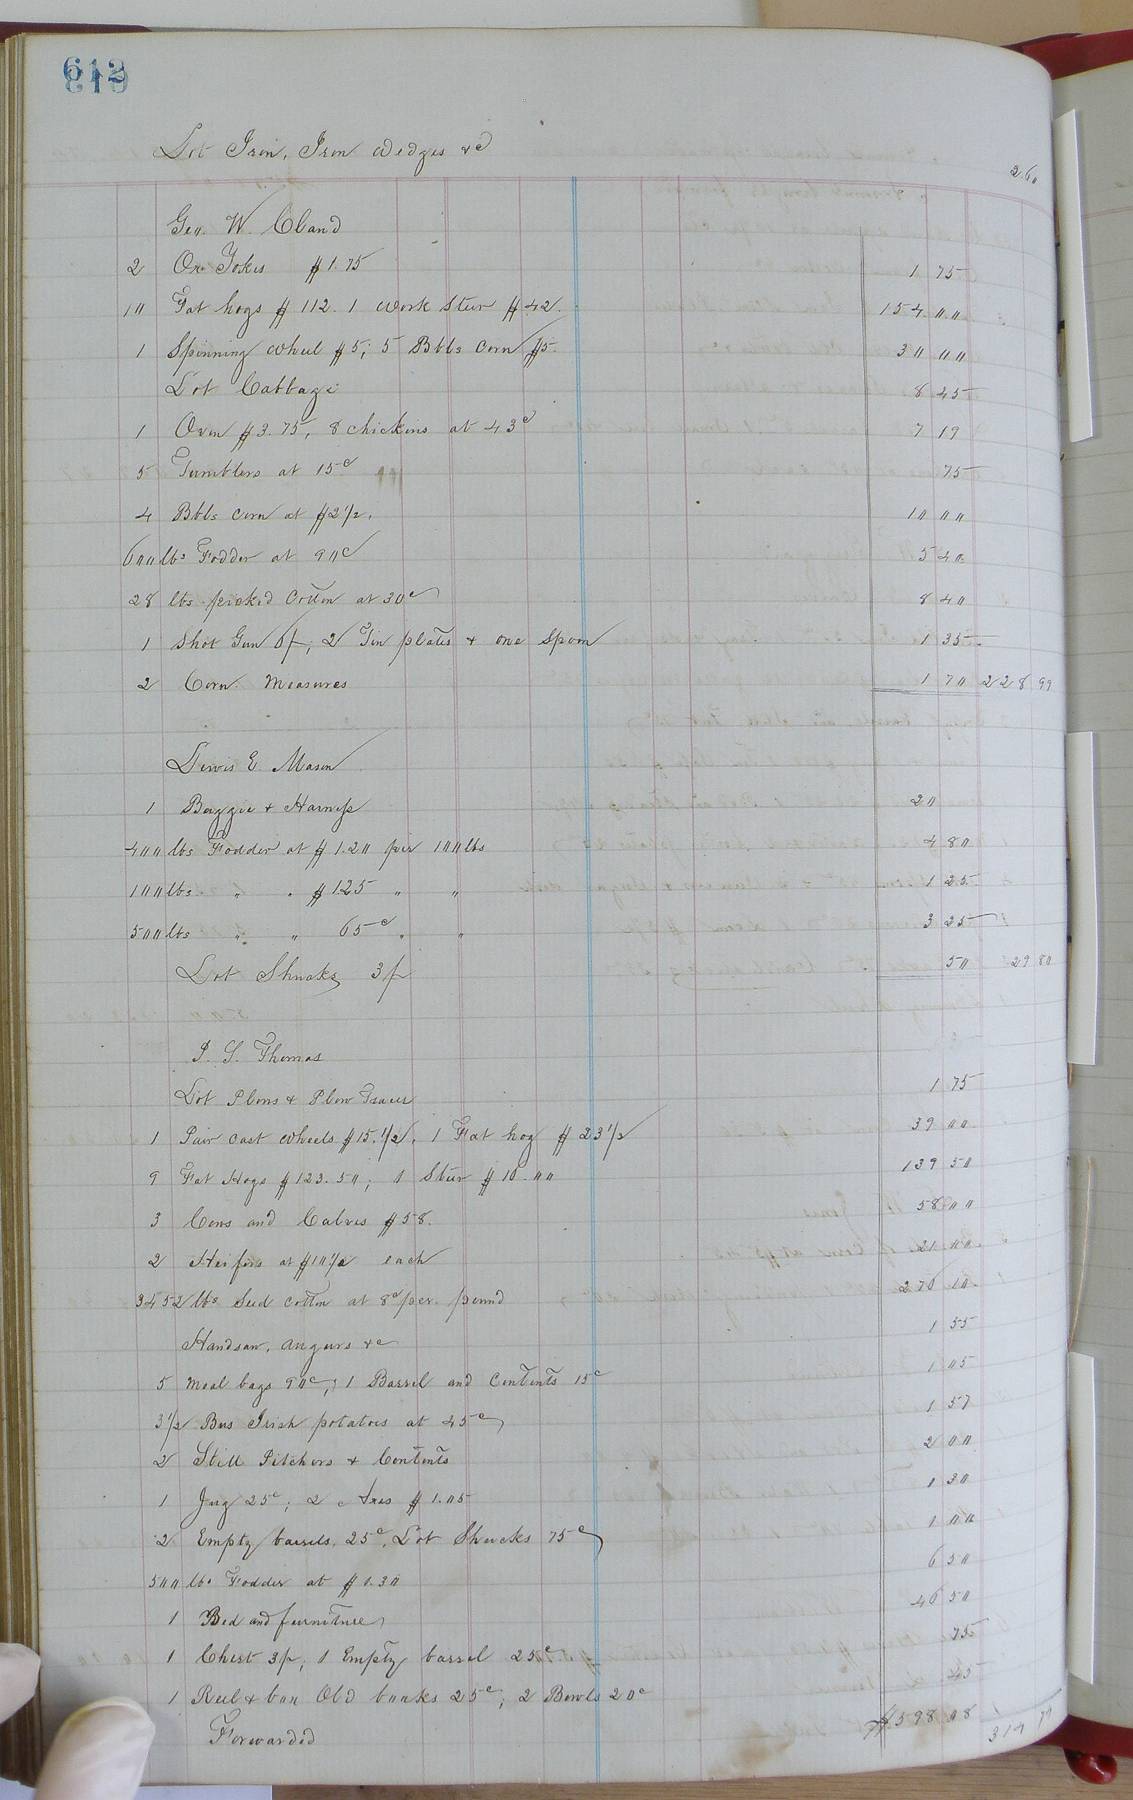 612
Lot Iron, Iron wedges &c 2.60
Geo. W. Bland
2 Ox Yokes $1.75 1 75
10 Fat hogs $112. 1 work Steer $42. 154 00
1 Spinning wheel $5; 5 Bbls corn $5. 30 00
Lot Cabbage 8 45
1 Oven $3.75, 8 chickens at 43c 7 19
5 Tumblers at 15c 75
4 Bbls corn at $2 1/2. 10 00
600 lbs Fodder at 90c 5 40
28 lbs picked Cotton at 30c 8 40
1 Shot Gun 6/; 2 Tin plates & one Spoon 1 35
2 Corn Measures 1 70 228 99
Lewis E. Mason
1 Buggie & Harness 20
400 lbs Fodder at $1.20 per 100 lbs 4 80
100 lbs " " $1.25 " " 1 25
500 lbs " " 65c " " 3 25
Lot Shucks 3/ 50 29 80
J. S. Thomas
Lot Plows & Plow Traces 1 75
1 Pair cart wheels $15.1/2, 1 Fat hog $23 1/2 39 00
9 Fat Hogs $123.50; 1 Steer $16.00 139 50
3 Cows and Calves $58. 58 00
2 Heifers at $10 1/2 each 21 00
3452 lbs Seed cotton at 8c per. pound 276 16
Handsaw, augurs &c 1 55
5 meal bags 90c; 1 Barrel and Contents 15c 1 05
3 1/2 Bus Irish potatoes at 45c 1 57
2 Still Pitchers & Contents 2 00
1 Jug 25c; 2 Axes $1.05 1 30
2 Empty barrels. 25c, Lot Shucks 75c 1 00
500 lbs Fodder at $1.30 6 50
1 Bed and furniture 46 50
1 Chest 3/, 1 Empty barrel 25c 75
1 Reel & box Old books 25c; 2 Bowls 20c 45
Forwarded $598 08 314 79